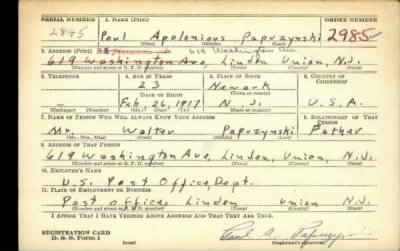 SERIAL NUMBER 1. NAME (Print) ORDER NUMBER
2845 Paul Apolonious Papuzynski 2985
(First) (Middle) (Last)
2. ADDRESS (Print) 619 Washington Ave
619 Washington Ave, Linden Union, N.J.
(Number and street or R. F. D. number) (Town) (County) (State)
3. TELEPHONE 4. AGE IN YEARS 5. PLACE OF BIRTH 6. COUNTRY OF CITIZENSHIP
23 Newark
DATE OF BIRTH (Town or county)
— Feb. 26, 1917 N. J. U.S.A.
(Exchange) (Number) (Mo.) (Day) (Yr.) (State or country)
7. NAME OF PERSON WHO WILL ALWAYS KNOW YOUR ADDRESS 8. RELATIONSHIP OF THAT PERSON
Mr. Walter Papuzynski Father
(Mr., Mrs., Miss) (First) (Middle) (Last)
9. ADDRESS OF THAT PERSON
619 Washington Ave, Linden, Union, N.J.
(Number and street or R. F. D. number) (Town) (County) (State)
10. EMPLOYER'S NAME
U.S. Post Office, Dept.
11. PLACE OF EMPLOYMENT OR BUSINESS
Post office, Linden Union N.J.
(Number and street or R. F. D. number) (Town) (County) (State)
I AFFIRM THAT I HAVE VERIFIED ABOVE ANSWERS AND THAT THEY ARE TRUE.
REGISTRATION CARD
D. S. S. Form 1 (over) (Registrant's signature)